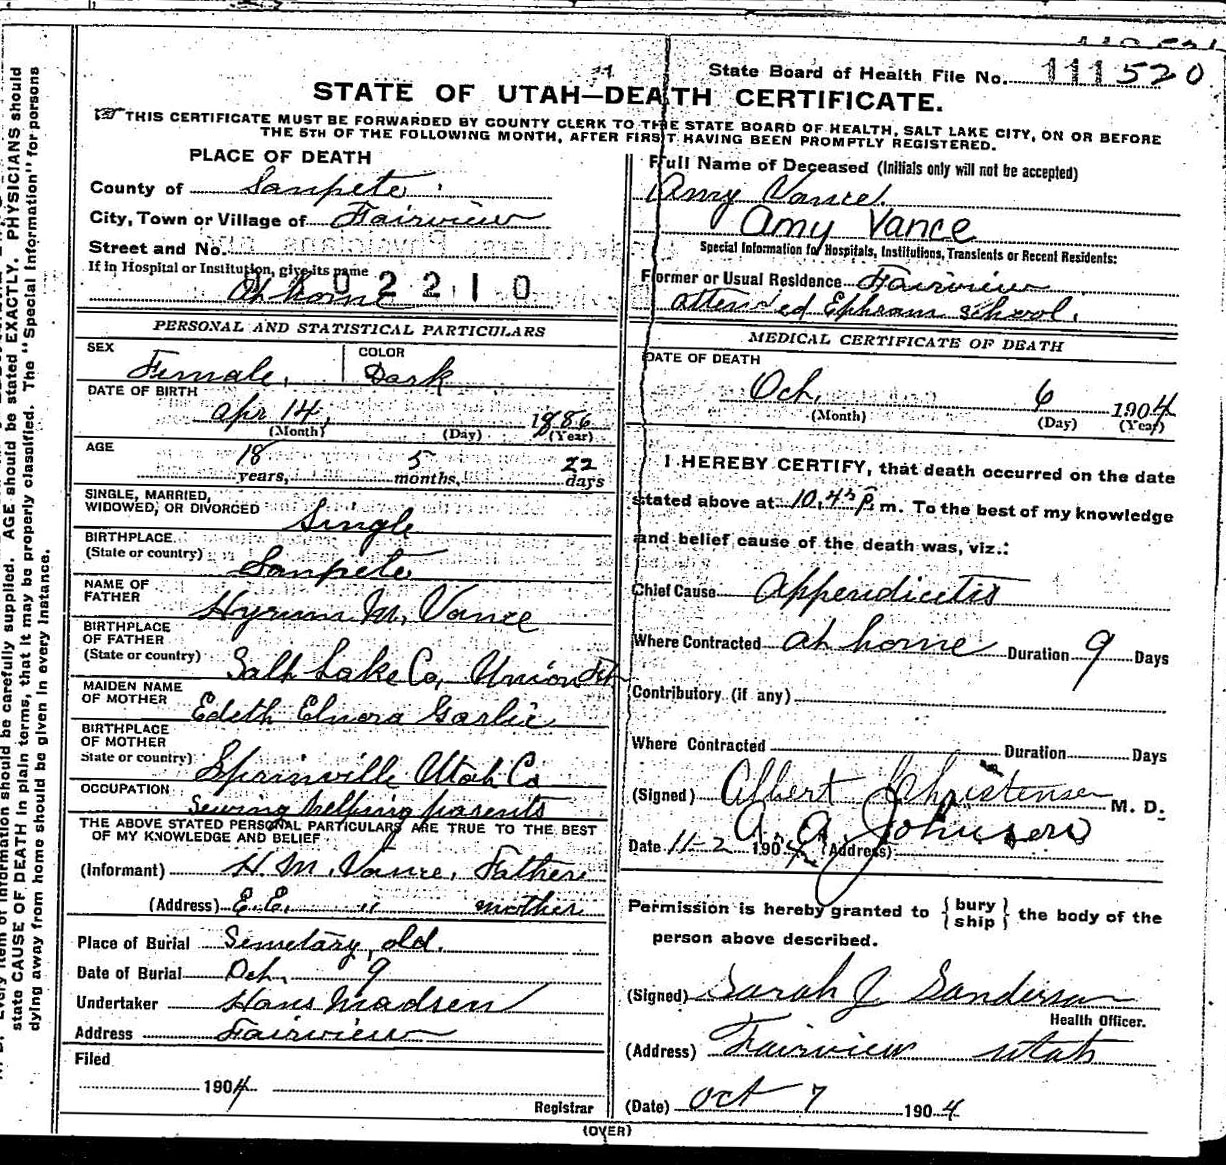 State Board of Health File No. 111520
STATE OF UTAH—DEATH CERTIFICATE.
THIS CERTIFICATE MUST BE FORWARDED BY COUNTY CLERK TO THE STATE BOARD OF HEALTH, SALT LAKE CITY, ON OR BEFORE
THE 5TH OF THE FOLLOWING MONTH, AFTER FIRST HAVING BEEN PROMPTLY REGISTERED.
PLACE OF DEATH
County of Sanpete
City, Town or Village of Fairview
Street and No.
If in Hospital or Institution, give its name
At home
0402210
PERSONAL AND STATISTICAL PARTICULARS
SEX Female, COLOR Dark
DATE OF BIRTH
Apr 14, 1886
(Month) (Day) (Year)
AGE
18 years, 5 months, 22 days
SINGLE, MARRIED,
WIDOWED, OR DIVORCED Single
BIRTHPLACE
(State or country) Sanpete
NAME OF
FATHER Hyrum M. Vance
BIRTHPLACE
OF FATHER
(State or country) Salt Lake Co, Union
MAIDEN NAME
OF MOTHER Edeth Elnora Garlic
BIRTHPLACE
OF MOTHER
State or country) Sprinville Utah Co
OCCUPATION Sewing helping parents
THE ABOVE STATED PERSONAL PARTICULARS ARE TRUE TO THE BEST
OF MY KNOWLEDGE AND BELIEF
(Informant) H. M. Vance, Father
(Address) E. E. " mother
Place of Burial Semetary, old.
Date of Burial Oct, 9
Undertaker Hans Madsen
Address Fairview
Filed
1904
Registrar
Full Name of Deceased (Initials only will not be accepted)
Amy Vance.
Amy Vance
Special Information for Hospitals, Institutions, Transients or Recent Residents:
Former or Usual Residence Fairview
attended Ephram school.
MEDICAL CERTIFICATE OF DEATH
DATE OF DEATH
Oct, 6 1904
(Month) (Day) (Year)
I HEREBY CERTIFY, that death occurred on the date
stated above at 10,45 P. m. To the best of my knowledge
and belief cause of the death was, viz.:
Chief Cause Appendicetis
Where Contracted at home Duration 9 Days
Contributory (if any)
Where Contracted Duration Days
(Signed) Albert Christensen M. D.
A. A. Johnsen
Date 11-2 1904 (Address)
Permission is hereby granted to {bury ship} the body of the
person above described.
(Signed) Sarah J Sanderson
Health Officer.
(Address) Fairview Utah
(Date) Oct 7 1904
(OVER)
AGE should be stated EXACTLY. PHYSICIANS should
state CAUSE OF DEATH in plain terms, that it may be properly classified. The "Special Information" for persons
dying away from home should be given in every instance.